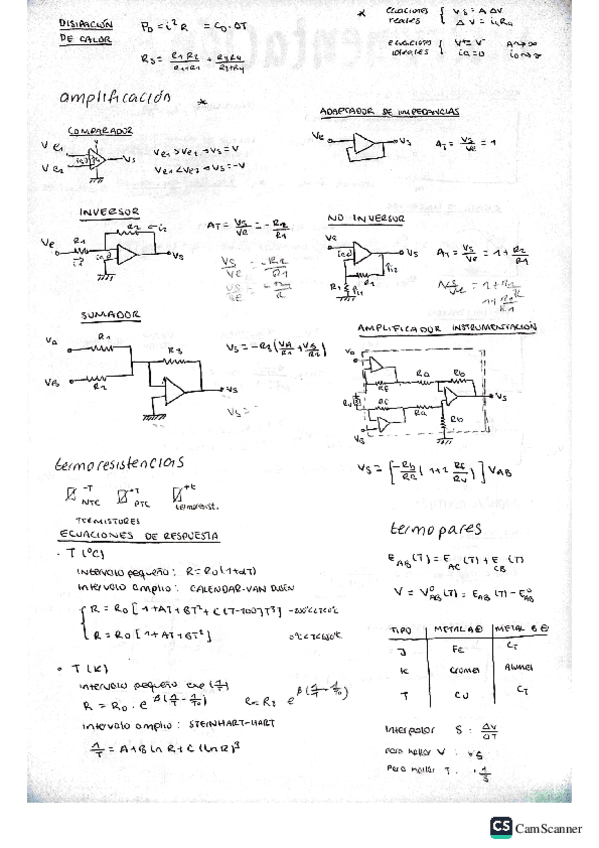 DISIPACIÓN DE CALOR
P_D = i² R = C_D · ΔT
R_S = R1R2/(R1+R2) + R3R4/(R3+R4)
* ecuaciones reales { Vs = A ΔV
ΔV = id Rd
ecuaciones ideales { V+ = V- A→∞
id = 0
amplificación *
COMPARADOR
Ve1
Ve2
Vs
Ve1 > Ve2 → Vs = V
Ve1 < Ve2 → Vs = -V
ADAPTADOR DE IMPEDANCIAS
Ve
Vs
AT = Vs/Ve = 1
INVERSOR
Ve
R1
R2
Vs
AT = Vs/Ve = -R2/R1
Vs/Ve = -R2/R1
NO INVERSOR
Ve
Vs
R1
R2
AT = Vs/Ve = 1 + R2/R1
SUMADOR
VA
R1
VB
R2
R3
Vs
Vs = -R3 (VA/R1 + VB/R2)
Vs =
AMPLIFICADOR INSTRUMENTACIÓN
Ra
Rb
Ra
Rb
Vs
Vs = [-Rb/Ra (1+2 RF/RV)] VAB
termoresistencias
-T
NTC
+T
PTC
+t
termoresist.
TERMISTORES
ECUACIONES DE RESPUESTA
· T (°C)
Intervalo pequeño: R = R0 (1+αT)
Intervalo amplio: CALENDAR-VAN DUSEN
R = R0 [1+AT+BT²+C(T-100)T³] -200°C<T<0°C
R = R0 [1+AT+BT²]
• T (K)
Intervalo pequeño exp (1/T)
R = R0 · e^β(1/T - 1/T0)
Intervalo amplio: STEINHART-HART
1/T = A + B ln R + C (ln R)³
termopares
E_AB (T) = E_AC (T) + E_CB (T)
V = V⁰_AB (T) = E_AB (T) - E⁰_AB
TIPO METAL A⊕ METAL B⊖
J Fe CT
K Cromel Alumel
T Cu CT
Interpolar S: ΔV/ΔT
Para hallar V: ·S
Para hallar T: ·1/S
CS CamScanner